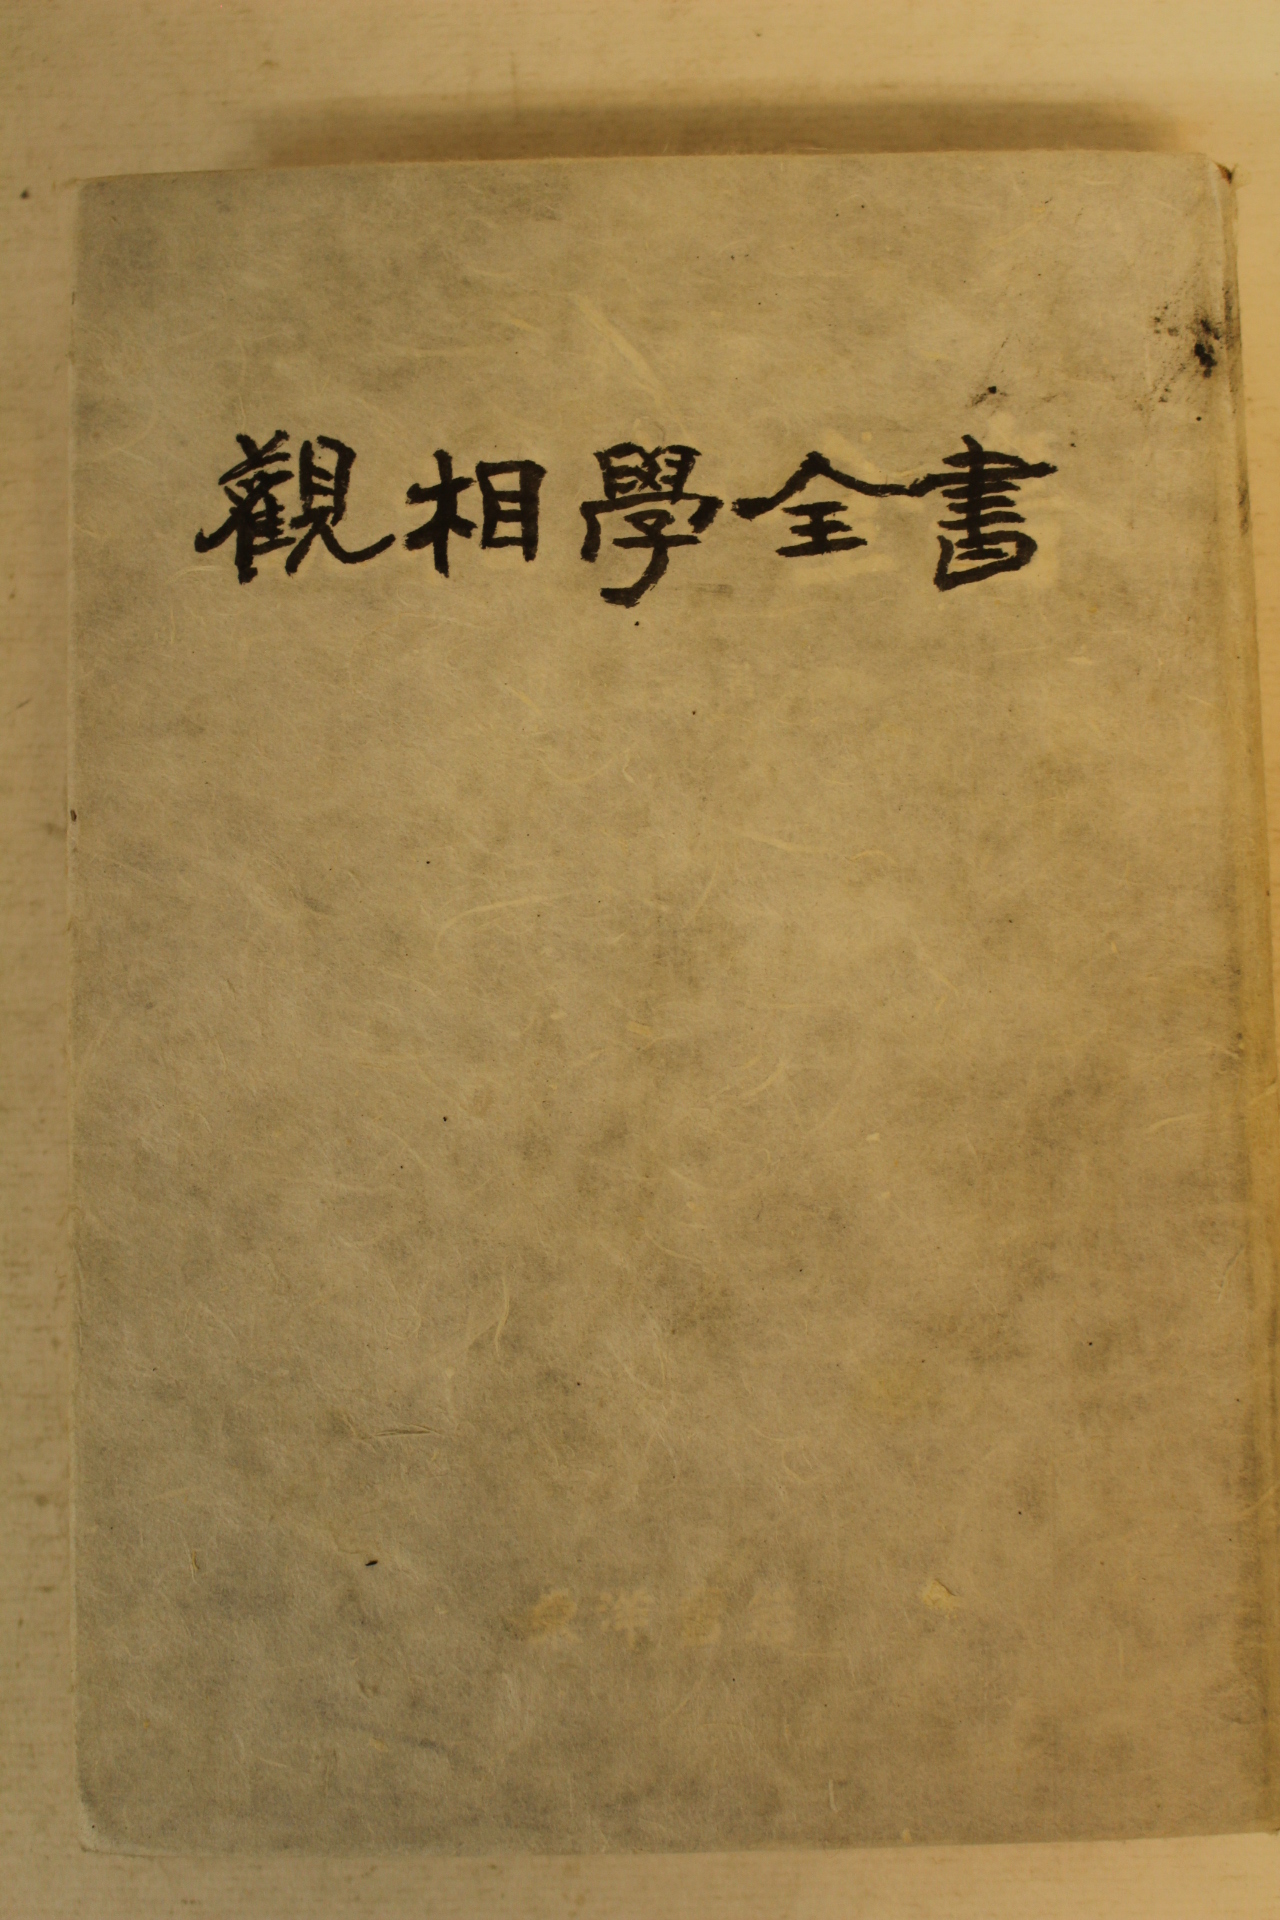 觀相學全書